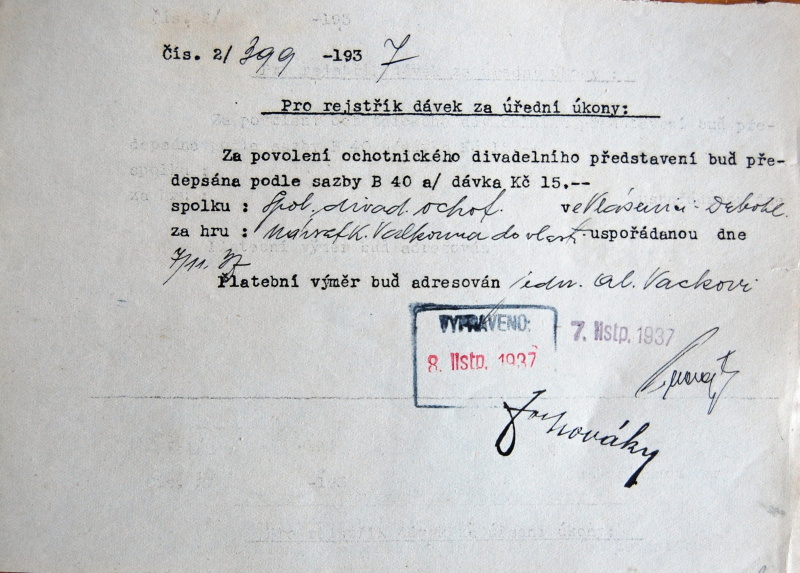 čís. 2/ 399 -193 7
Pro rejstřík dávek za úřední úkony:
Za povolení ochotnického divadelního představení buď pře-
depsána podle sazby B 40 a/ dávka Kč 15.--
spolku : Spol. divad. ochot. ve Vlašimi - Debohl.
za hru : návrat K. Valkouna do vlasti uspořádanou dne
7/11. 37
Platební výměr buď adresován jedn. Al. Vackovi
VYPRAVENO:
8. listp. 1937
7. listp. 1937